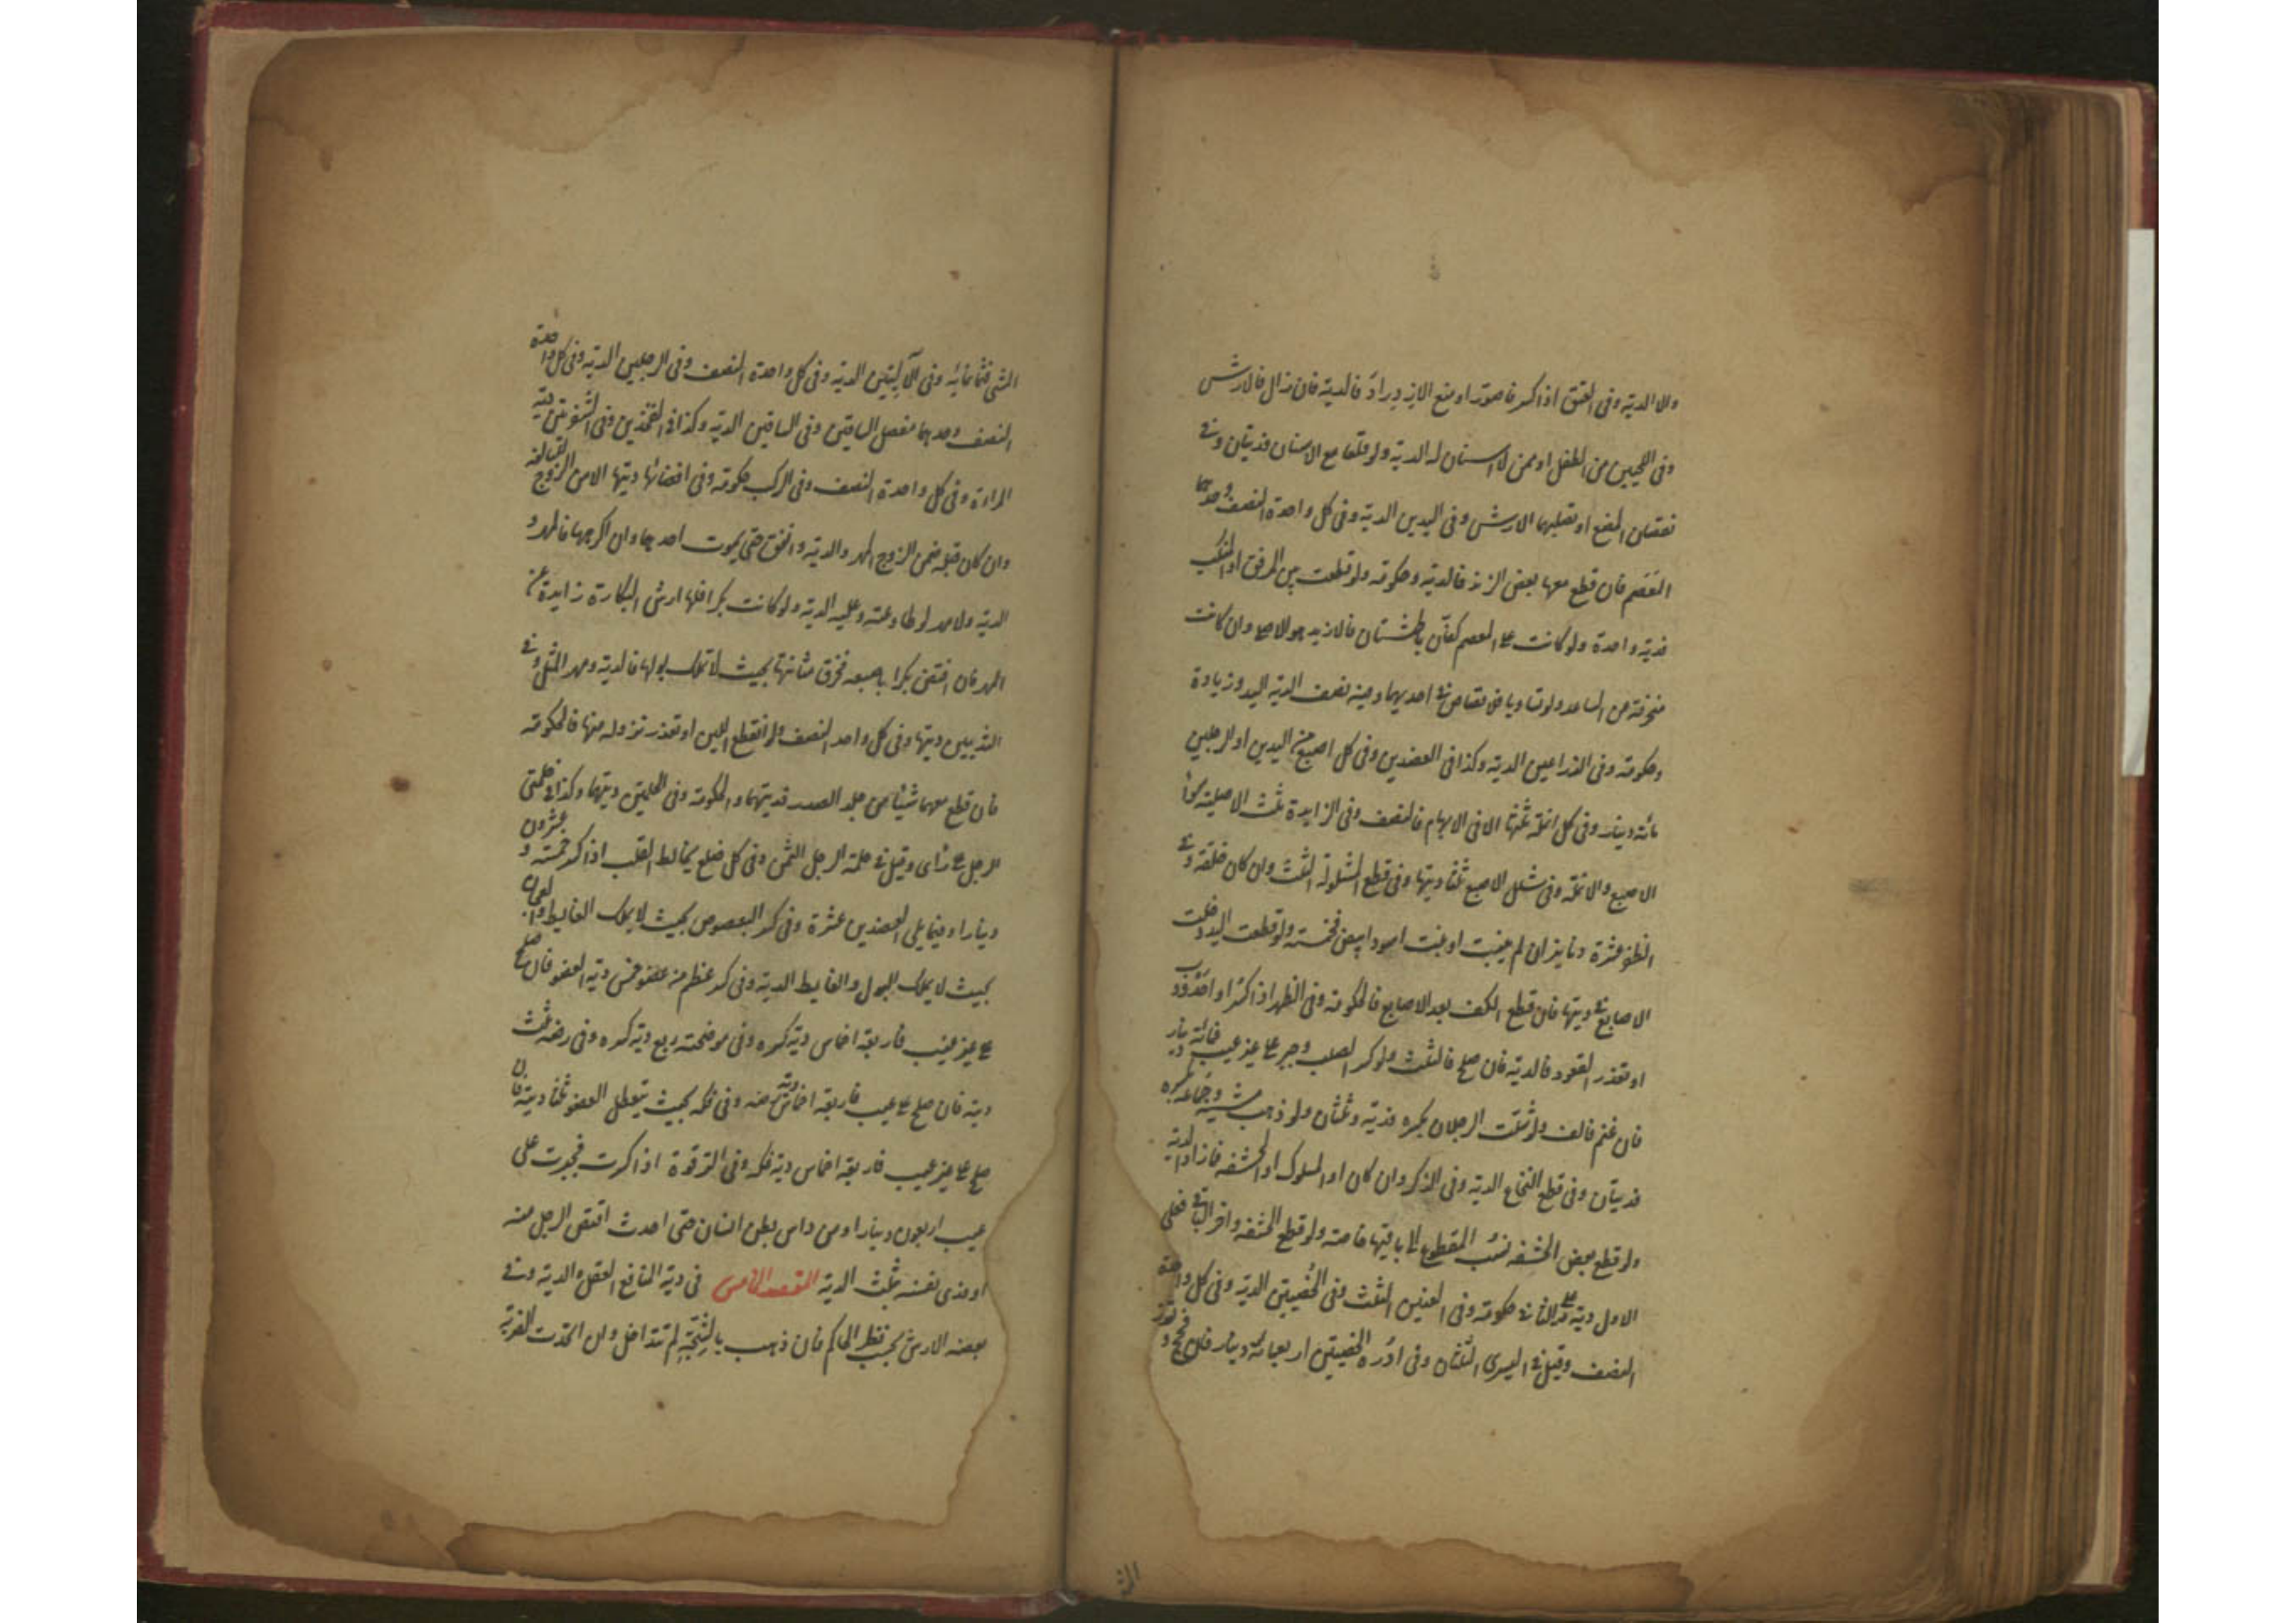 والا الدية وفى العنق اذا كسر فاصوّر او منع الازدراد فالدية فان زال فالارش
وفى اللحيين من الطفل او ممن لا اسنان له الدية ولو قلعا مع الاسنان فديتان وفى
نقصان المضغ او تصلبهما الارش وفى اليدين الدية وفى كل واحدة النصف وحدهما
المعصم فان قطع معها بعض الزند فالدية وحكومة ولو قطعت من المرفق او المنكب
فدية واحدة ولو كانت على المعصم كفان باطشتان فالازيد هو الاصل وان كانت
منحرفة عن الساعد ولو تساويا فى قصاص فى احديهما وفيه نصف الدية اليد وزيادة
وحكومة وفى الذراعين الدية وكذا فى العضدين وفى كل اصبع من اليدين او الرجلين
مائة دينار وفى كل انملة ثلثها الا فى الابهام فالنصف وفى الزايدة ثلث الاصلية سوآء
الاصبع والانملة وفى شلل الاصبع ثلثا ديتها وفى قطع المشلولة الثلث وان كان خلقة وفى
الظفر عشرة دنانير ان لم ينبت او نبت اسود ابيض فخمسة ولو قطعت اليد دخلت
الاصابع فى ديتها فان قطع الكف بعد الاصابع فالحكومة وفى الظهر اذا كسر او احدودب
او تعذر القعود فالدية فان صلح فالثلث ولو كسر الصلب وجبر على غير عيب فمائة دينار
فان عثم فالف ولو شلت الرجلان بكسره فدية وثلثان ولو ذهب مشيه وجماعه بكسره
فديتان وفى قطع النخاع الدية وفى الذكر وان كان او المسلول او الحشفة فما زاد الدية
ولو قطع بعض الحشفة نسب المقطوع الى باقيها خاصة ولو قطع الحشفة واخر الباقى فعلى
الاول دية وعلى الثانى حكومة وفى العنين الثلث وفى الخصيتين الدية وفى كل واحدة
النصف وقيل فى اليسرى الثلثان وفى ادرة الخصيتين اربعمائة دينار فان فحج وتعذر
الشى فثمانمائه وفى الآليتين الدية وفى كل واحدة النصف وفى الرجلين الدية وفى كل واحدة
النصف وحدهما مفصل الساقين وفى الساقين الدية وكذا فى الفخذين وفى الشفرتين دية
المراءة وفى كل واحدة النصف وفى الركب حكومة وفى افضائها ديتها الا من الزوج البالغة
وان كان قبله ضمن الزوج المهر والدية وانفق حتى يموت احدهما وان اكرهها فالمهر و
الدية ولا مهر لو طاوعته وعليه الدية ولو كانت بكرا فلها ارش البكارة زايدة عن
المهر فان افتض بكرا باصبعه فخرق مثانتها بحيث لا تملك بولها فالدية ومهر المثل وفى
الثديين ديتها وفى كل واحد النصف ولو انقطع اللبن او تعذر نزوله منها فالحكومة
فان قطع معهما شيئا من جلد الصدر فديتهما والحكومة وفى الحلمتين ديتها وكذا فى حلمتى
الرجل على راى وقيل فى حلمة الرجل الثمن وفى كل ضلع يخالط القلب اذا كسر خمسة و عشرون
دينارا وفيما يلى العضدين عشرة وفى كسر البعصوص بحيث لا يملك الغايط والعجان
بحيث لا يملك البول والغايط الدية وفى كسر عظم من عضو خمس دية العضو فان صلح
على غير عيب فاربعة اخماس دية كسره وفى موضحته ربع دية كسره وفى رضه ثلث
دية فان صلح على عيب فاربعة اخماس دية رضه وفى فكه بحيث يتعطل العضو ثلثا دية فان
صلح على غير عيب فاربعة اخماس دية فكه وفى الترقوة اذا كسرت فجبرت على
عيب اربعون دينارا ومن داس بطن انسان حتى احدث اقتص الرجل منه
او فدى نفسه بثلث الدية المقصد الخامس فى دية المنافع العقل الدية وفى
بعضه الارش بحسب نظر الحاكم فان ذهب بالشجة لم تتداخل وان اتحدت الضربة
الش